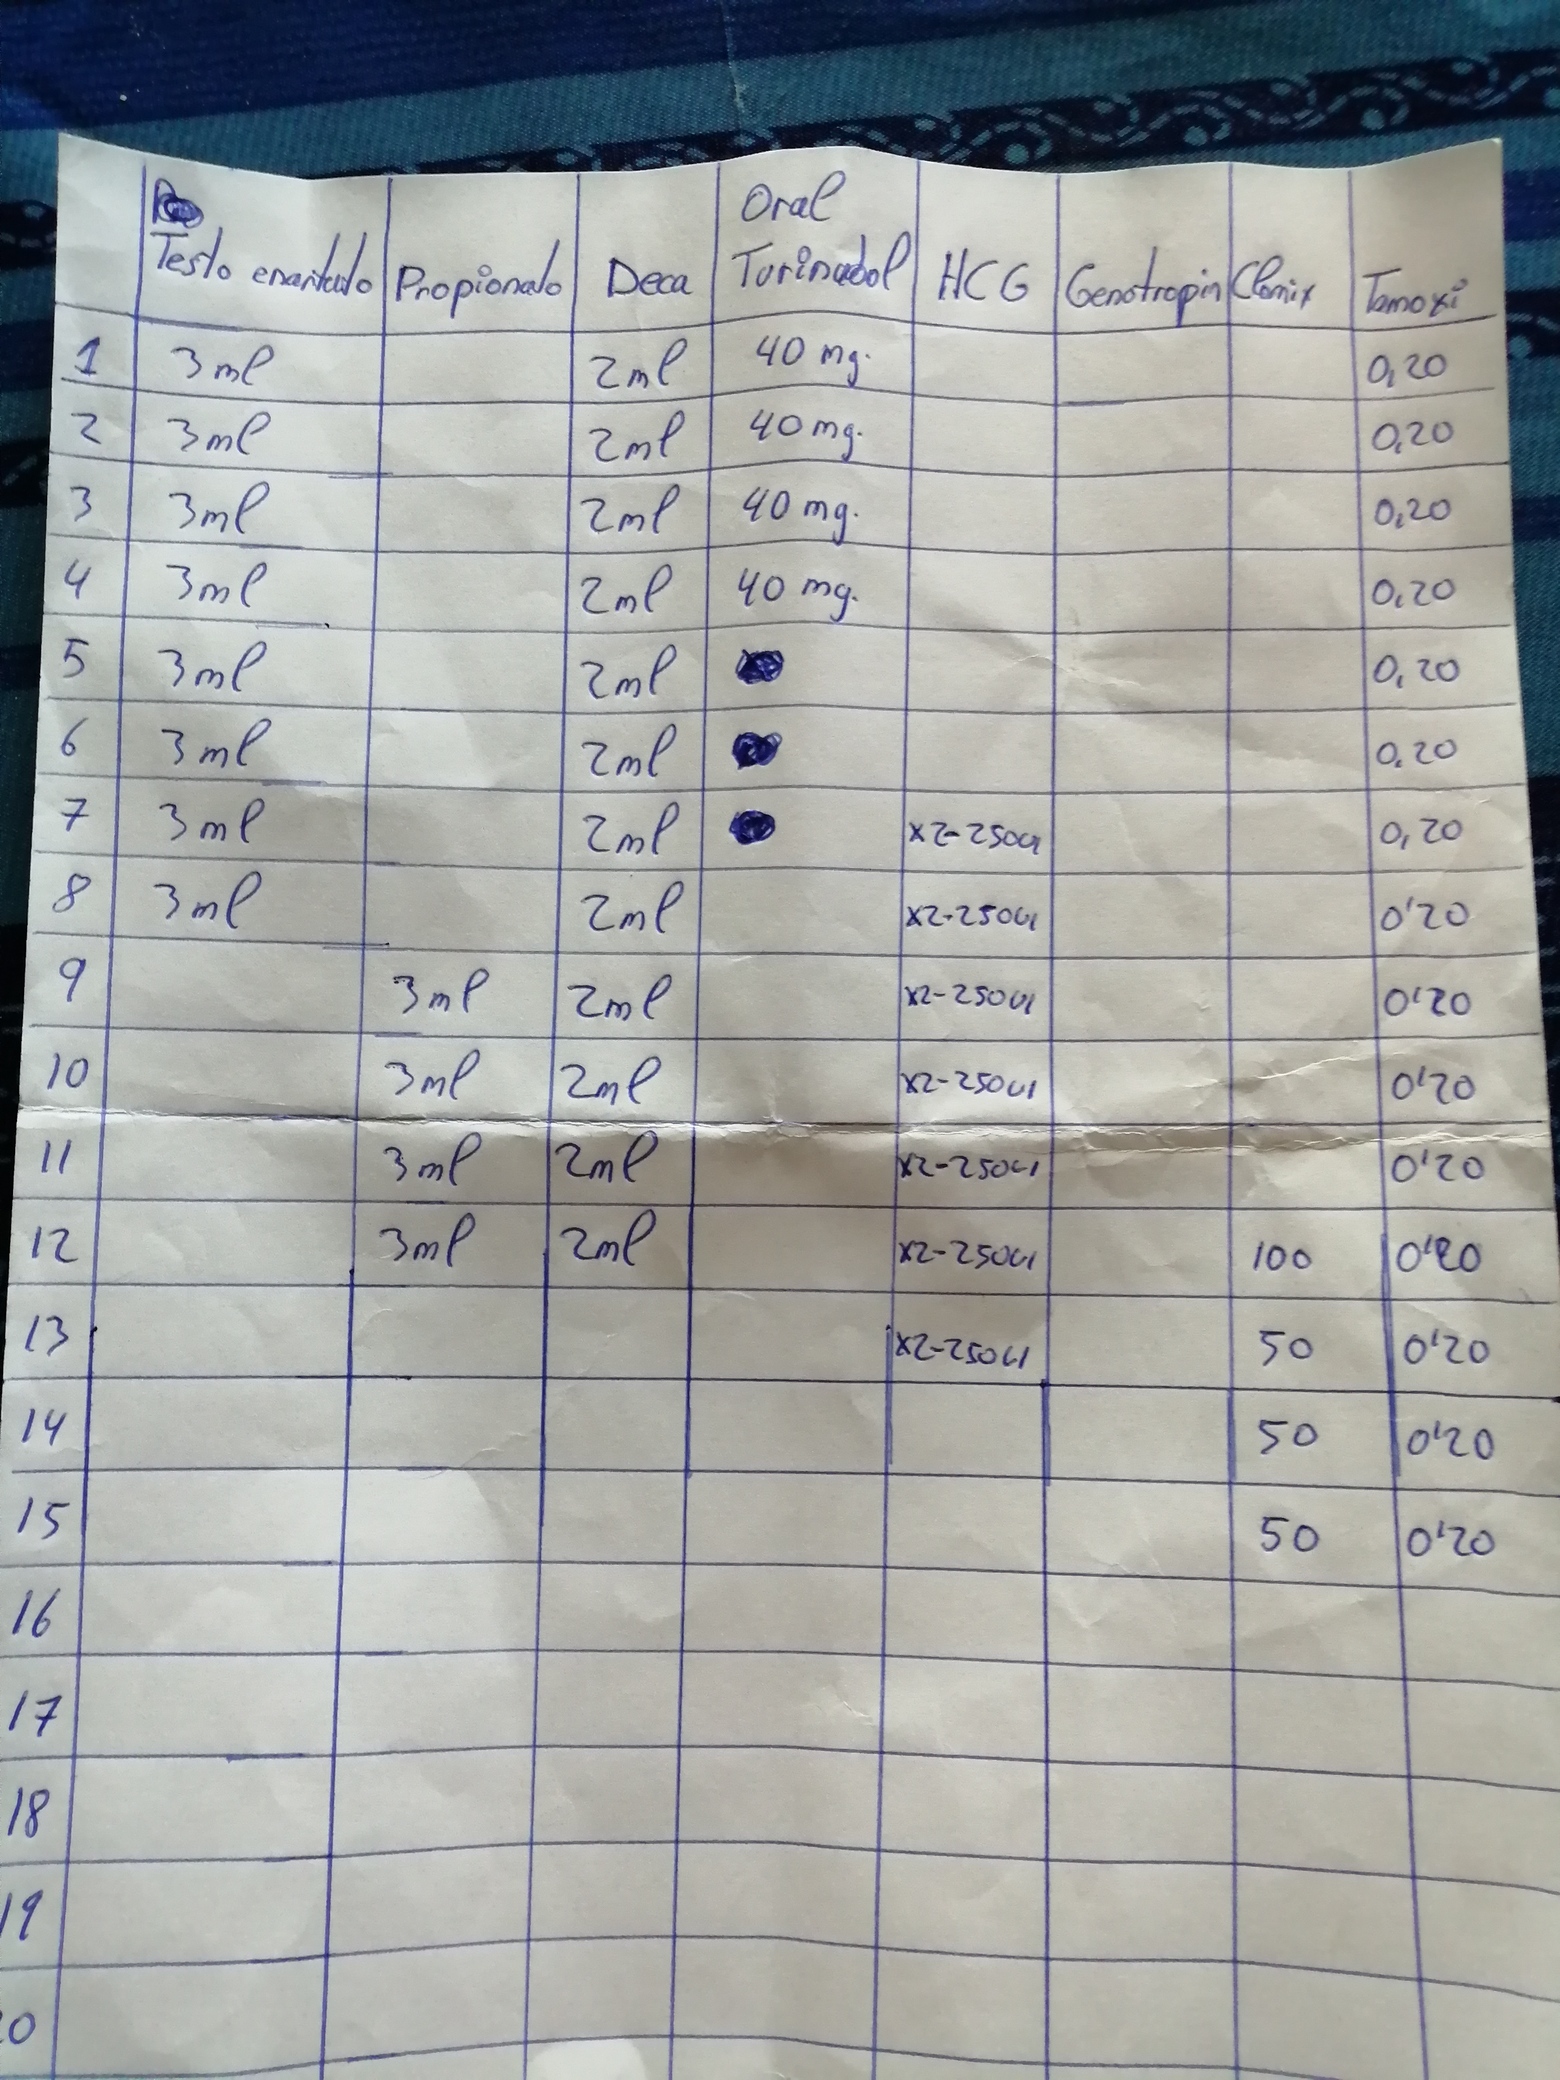 Oral
Testo enantato Propionato Deca Turinabol HCG Genotropin Clomix Tamoxi
1 3ml 2ml 40 mg. 0,20
2 3ml 2ml 40 mg. 0,20
3 3ml 2ml 40 mg. 0,20
4 3ml 2ml 40 mg. 0,20
5 3ml 2ml 0,20
6 3ml 2ml 0,20
7 3ml 2ml x2-250ui 0,20
8 3ml 2ml x2-250ui 0'20
9 3ml 2ml x2-250ui 0'20
10 3ml 2ml x2-250ui 0'20
11 3ml 2ml x2-250ui 0'20
12 3ml 2ml x2-250ui 100 0'20
13 x2-250ui 50 0'20
14 50 0'20
15 50 0'20
16
17
18
19
20